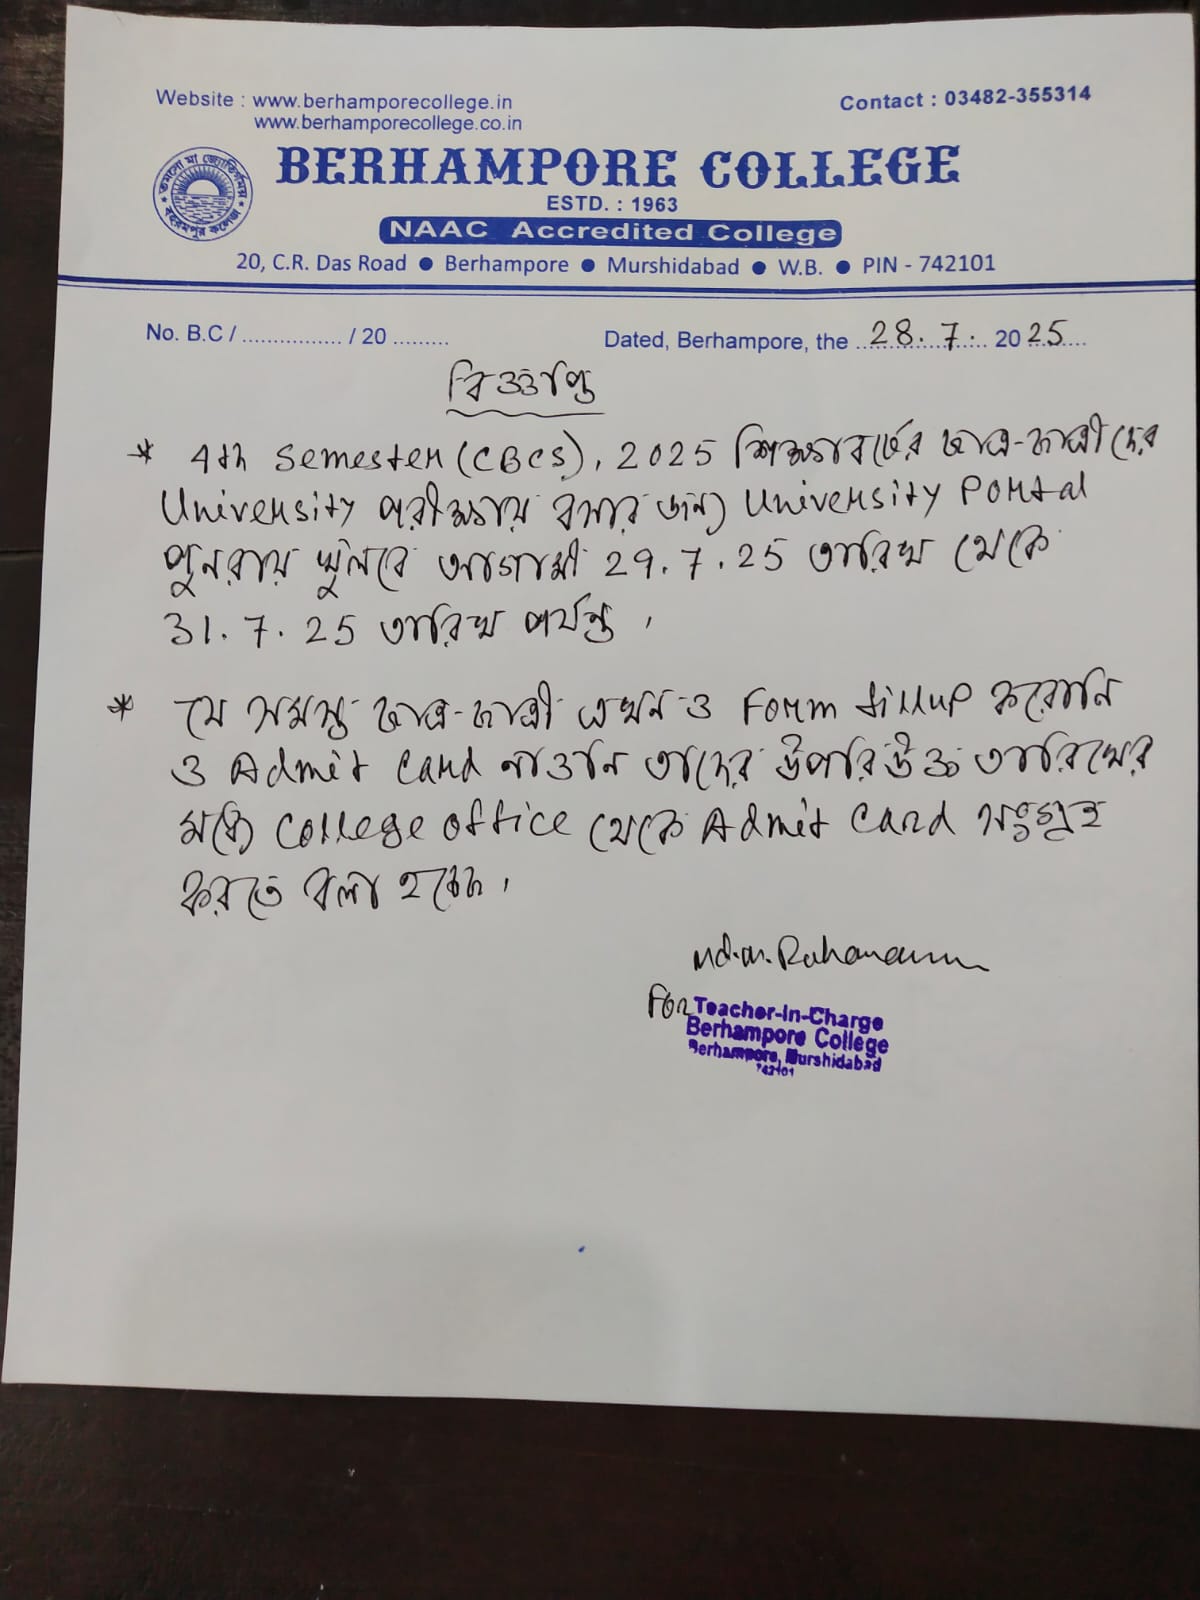 Website : www.berhamporecollege.in
www.berhamporecollege.co.in
Contact : 03482-355314
তমসো মা জ্যোতির্গময়
বহরমপুর কলেজ
BERHAMPORE COLLEGE
ESTD. : 1963
NAAC Accredited College
20, C.R. Das Road ● Berhampore ● Murshidabad ● W.B. ● PIN - 742101
No. B.C / ................ / 20 .........
Dated, Berhampore, the ...28.7... 2025....
বিজ্ঞপ্তি
* 4th Semester (CBCS), 2025 শিক্ষাবর্ষের ছাত্র-ছাত্রীদের
University পরীক্ষায় বসার জন্য University Portal
পুনরায় খুলবে আগামী 29.7.25 তারিখ থেকে
31.7.25 তারিখ পর্যন্ত।
* যে সমস্ত ছাত্র-ছাত্রী এখনও Form fillup করোনি
ও Admit Card নাওনি তাদের উপরিউক্ত তারিখের
মধ্যে College office থেকে Admit Card সংগ্রহ
করতে বলা হচ্ছে।
Md. M. Rahaman
For Teacher-In-Charge
Berhampore College
Berhampore, Murshidabad
742101